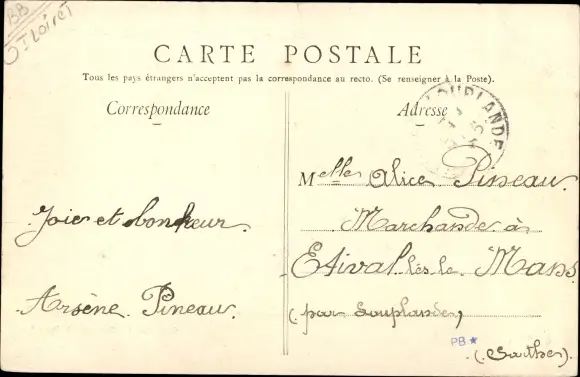 BB
Loiret
CARTE POSTALE
Tous les pays étrangers n'acceptent pas la correspondance au recto. (Se renseigner à la Poste).
Correspondance
Adresse
LOUPLANDE
Joie et bonheur.
Arsène Pineau.
Melle Alice Pineau.
Marchande à
Etival-lès-le Mans
(par Louplande)
PB *
(Sarthe).